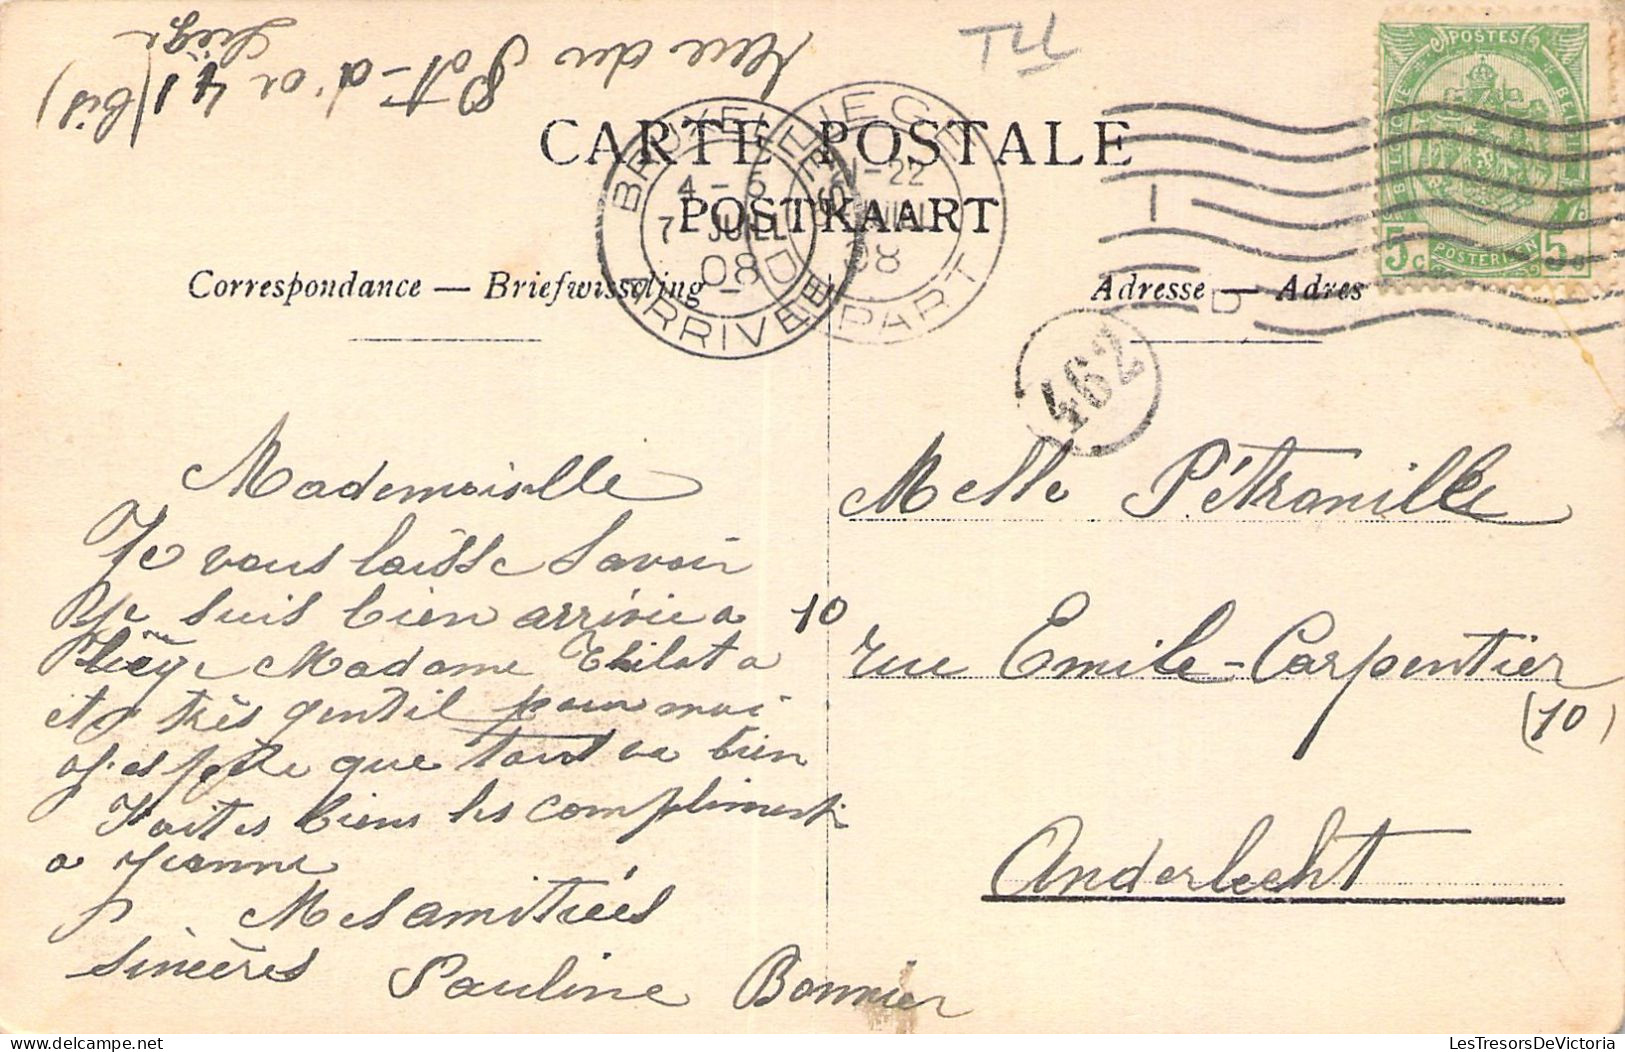 Rue du Pot-d'or 41 (bis)
Liège
CARTE POSTALE
POSTKAART
BRUXELLES
4-5
7 JUILL
08
ARRIVEE
LIEGE
-22
JUIL
08
DEPART
POSTES
BELGIQUE
BELGIE
5c
POSTERIJEN
5c
Correspondance — Briefwisseling
Adresse — Adres
462
Mademoiselle
Je vous laisse Savoir
je suis bien arrivée a
Liège Madame Thilot a
et très gentil pour moi
j'espere que tout va bien
Faites biens les compliments
a Jeanne
Mes amitiées
Sincères Pauline Bonnier
Melle Pétronille
10 rue Emile-Carpentier
(10)
Anderlecht
LesTresorsDeVictoria.com